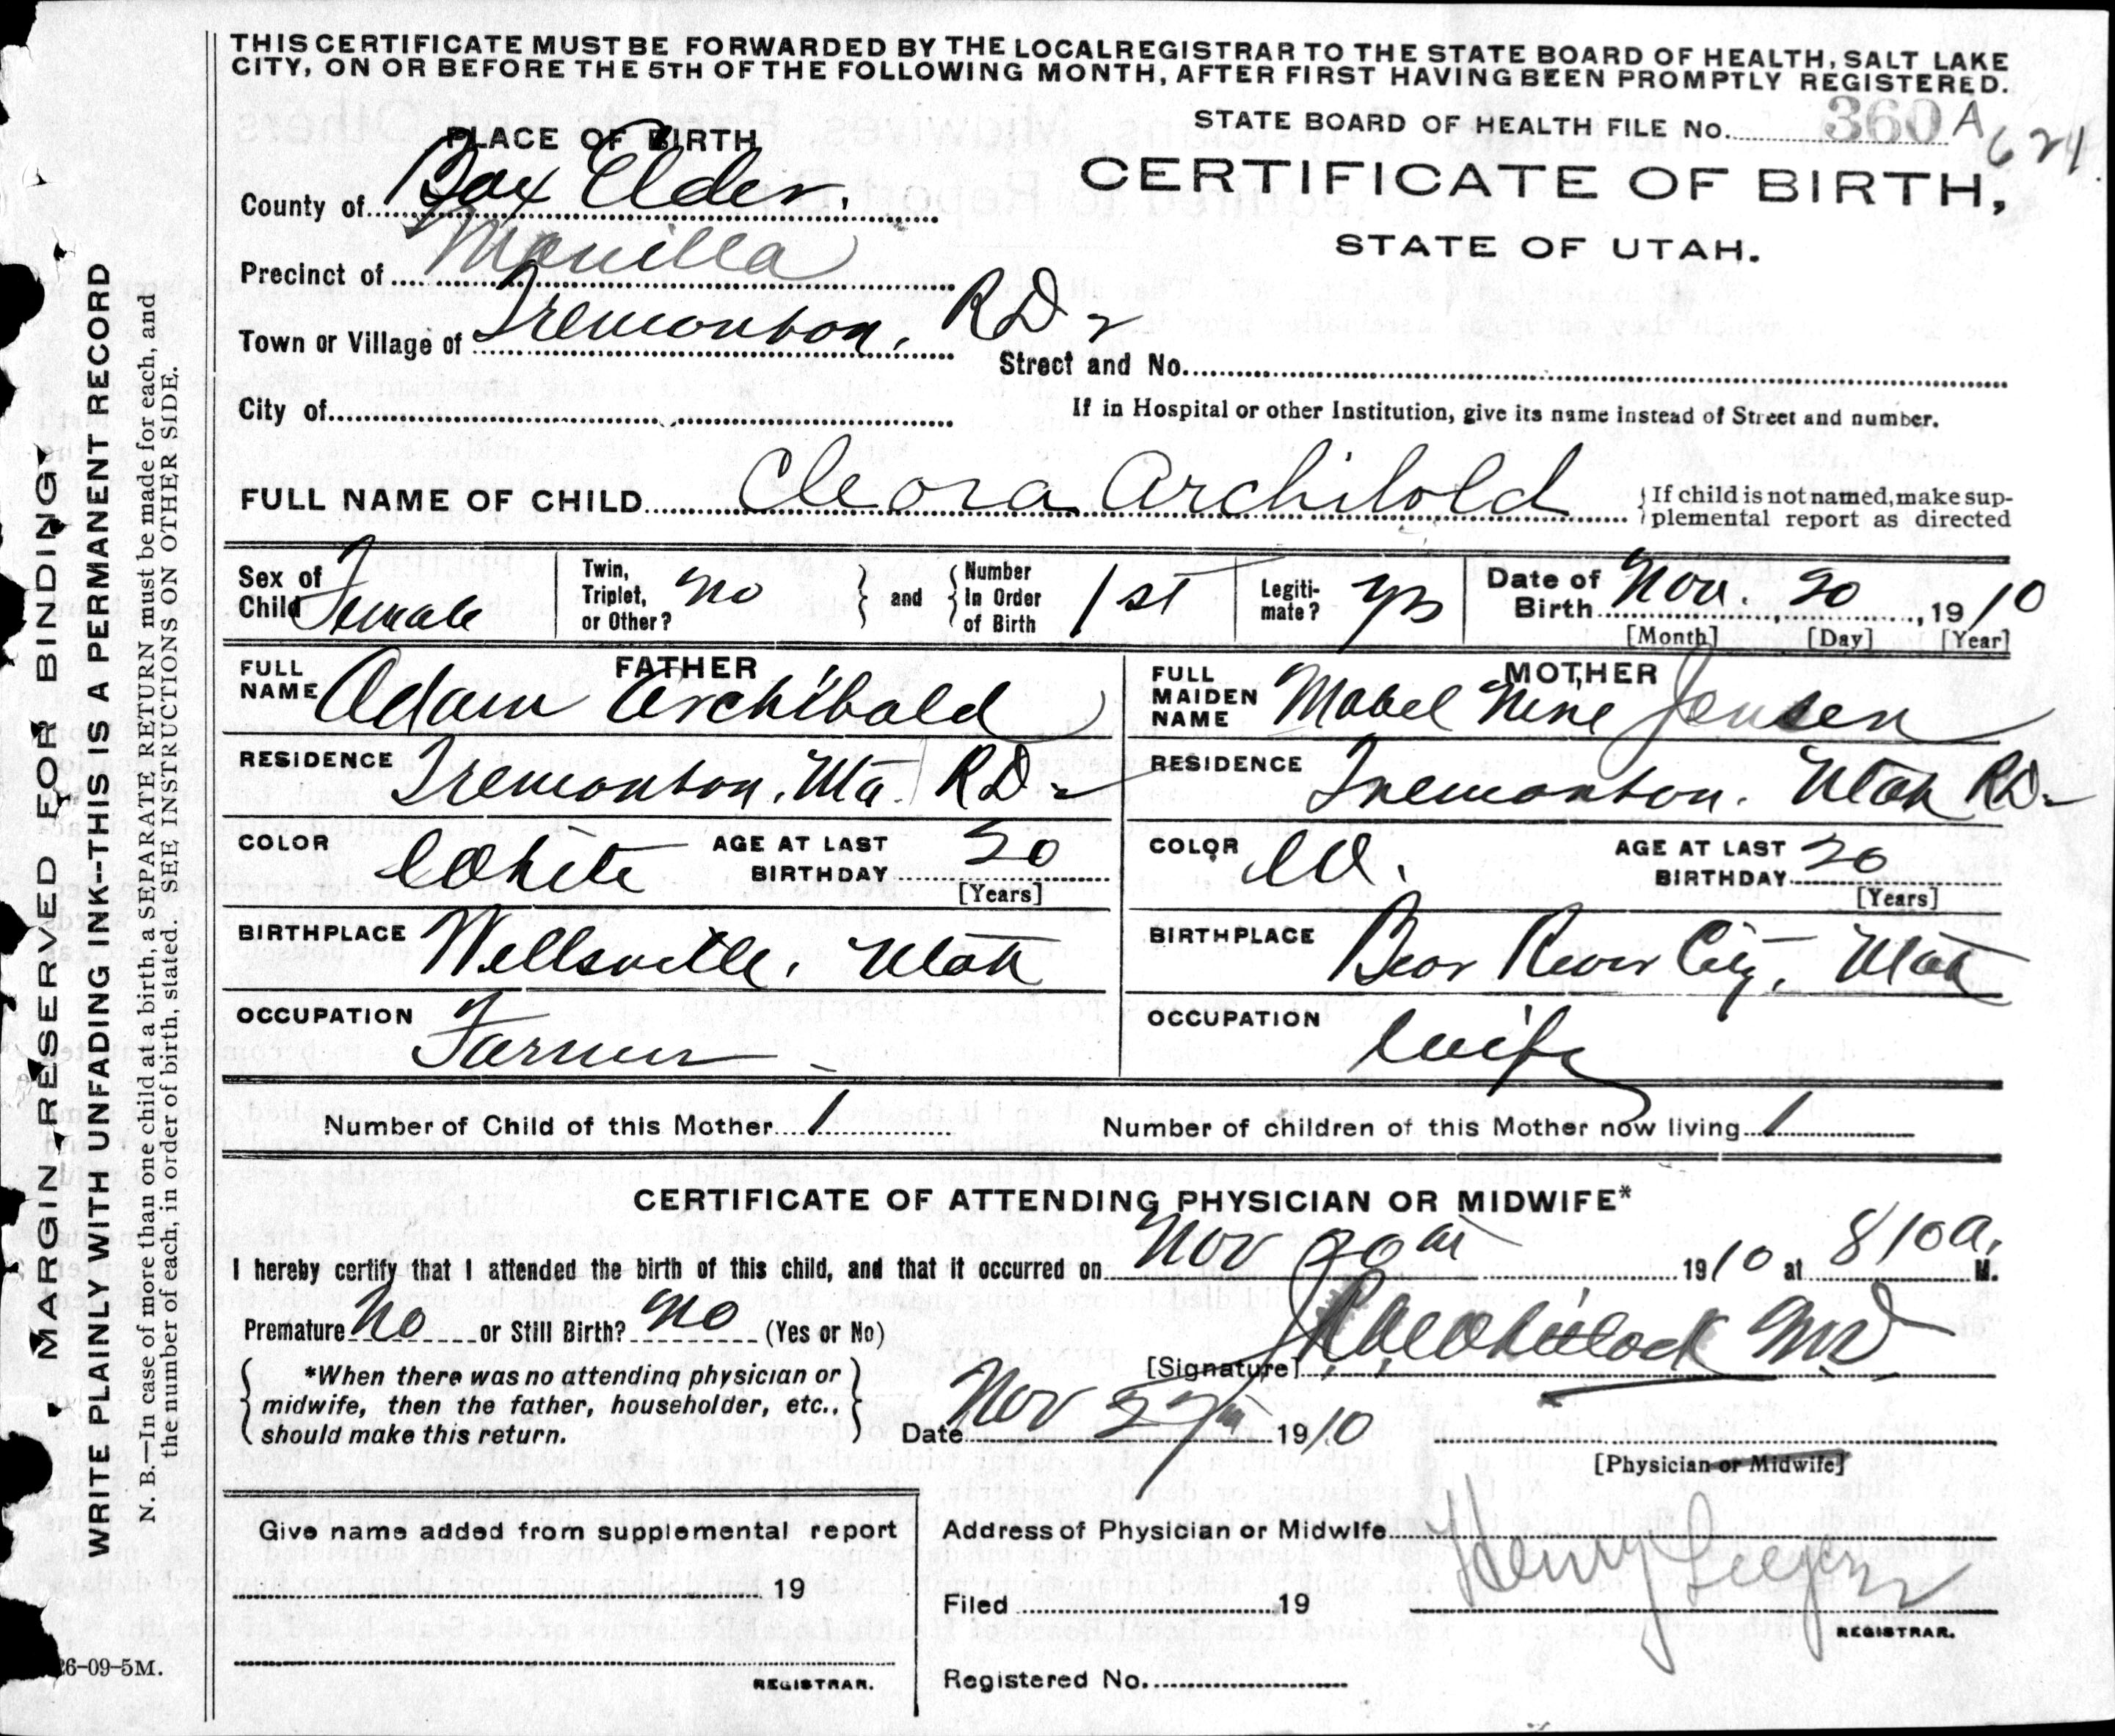 THIS CERTIFICATE MUST BE FORWARDED BY THE LOCAL REGISTRAR TO THE STATE BOARD OF HEALTH, SALT LAKE
CITY, ON OR BEFORE THE 5TH OF THE FOLLOWING MONTH, AFTER FIRST HAVING BEEN PROMPTLY REGISTERED.
STATE BOARD OF HEALTH FILE No. 360 A 621
PLACE OF BIRTH
CERTIFICATE OF BIRTH,
STATE OF UTAH.
County of Box Elder.
Precinct of Manilla
Town or Village of Tremonton, RD 2
Street and No.
City of
If in Hospital or other Institution, give its name instead of Street and number.
FULL NAME OF CHILD Cleora Archibold
{If child is not named, make sup-
plemental report as directed
Sex of Child Female
Twin, Triplet, or Other? No
and
Number In Order of Birth 1st
Legiti-mate? yes
Date of Birth Nov. 20, 1910
[Month] [Day] [Year]
FATHER
FULL NAME Adam Archibald
RESIDENCE Tremonton, Uta. RD 2
COLOR White
AGE AT LAST BIRTHDAY 20
[Years]
BIRTHPLACE Wellsville, Utah
OCCUPATION Farmer
MOTHER
FULL MAIDEN NAME Mabel Nene Jensen
RESIDENCE Tremonton. Utah RD 2
COLOR W.
AGE AT LAST BIRTHDAY 20
[Years]
BIRTHPLACE Bear River City, Utah
OCCUPATION Wife
Number of Child of this Mother 1
Number of children of this Mother now living 1
CERTIFICATE OF ATTENDING PHYSICIAN OR MIDWIFE*
I hereby certify that I attended the birth of this child, and that it occurred on Nov 20 1910 at 8 10 a. M.
Premature No or Still Birth? No (Yes or No)
[Signature] MD
*When there was no attending physician or
midwife, then the father, householder, etc.,
should make this return.
Date Nov 27 1910
[Physician or Midwife]
Give name added from supplemental report
19
REGISTRAR.
Address of Physician or Midwife
Filed 19
Henry
REGISTRAR.
Registered No.
MARGIN RESERVED FOR BINDING
WRITE PLAINLY WITH UNFADING INK--THIS IS A PERMANENT RECORD
N. B.—In case of more than one child at a birth, a SEPARATE RETURN must be made for each, and
the number of each, in order of birth, stated. SEE INSTRUCTIONS ON OTHER SIDE.
26-09-5M.